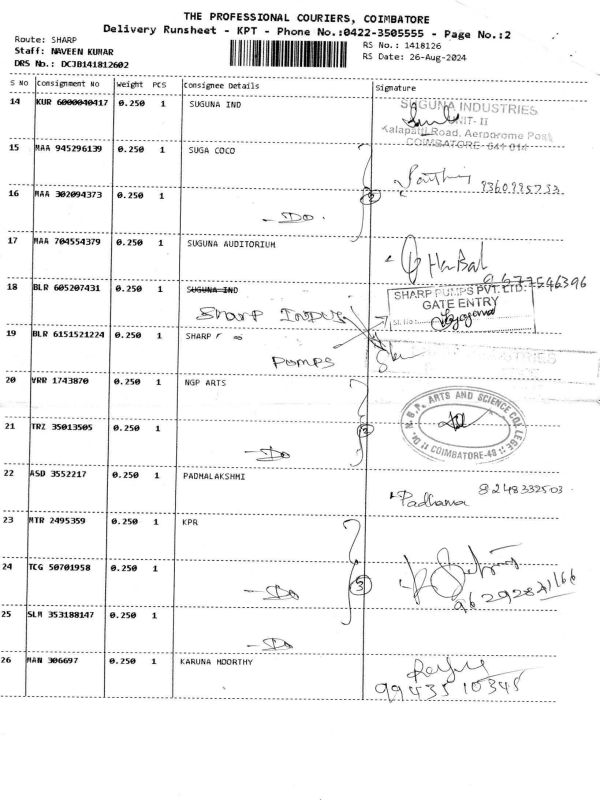 THE PROFESSIONAL COURIERS, COIMBATORE
Delivery Runsheet - KPT - Phone No.:0422-3505555 - Page No.:2
Route: SHARP
RS No.: 1418126
Staff: NAVEEN KUMAR
RS Date: 26-Aug-2024
DRS No.: DCJB141812602
S No Consignment No Weight PCS Consignee Details Signature
14 KUR 6000040417 0.250 1 SUGUNA IND
SUGUNA INDUSTRIES
UNIT- II
Kalapatti Road, Aerodrome Post
COIMBATORE- 641 014
15 MAA 945296139 0.250 1 SUGA COCO
16 MAA 302094373 0.250 1
- Do. 2
17 MAA 704554379 0.250 1 SUGUNA AUDITORIUM
18 BLR 605207431 0.250 1 SUGUNA IND
Sharp Indus
SHARP PUMPS PVT. LTD.
GATE ENTRY
Sl. No.
19 BLR 6151521224 0.250 1 SHARP
Pumps
INDUSTRIES
20 VRR 1743870 0.250 1 NGP ARTS
Dr. N.G.P. ARTS AND SCIENCE COLLEGE
COIMBATORE-48
21 TRZ 35013505 0.250 1
- Do 2
22 ASD 3552217 0.250 1 PADMALAKSHMI
8248332503
Padhama
23 MTR 2495359 0.250 1 KPR
24 TCG 50701958 0.250 1
- Do 3
25 SLM 353188147 0.250 1
- Do
26 MAN 306697 0.250 1 KARUNA MOORTHY
9943510345